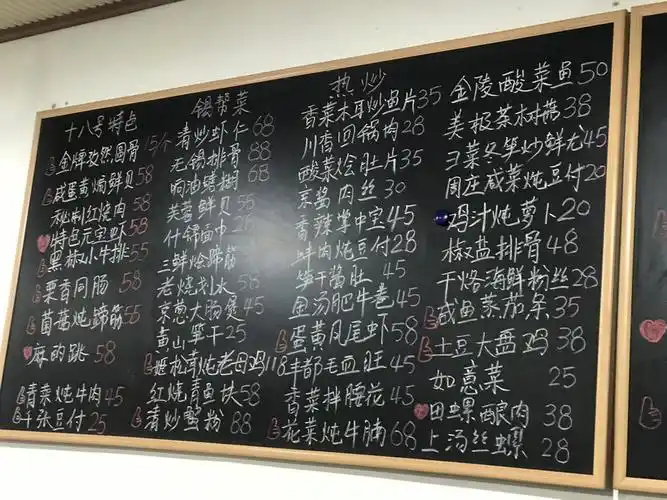 十八号特色
金牌孜然圆骨 15/个
咸蛋黄焗鲜贝 58
秘制红烧肉 58
特色元宝虾 58
黑椒小牛排 55
栗香同肠 58
菌菇炖蹄筋 55
麻的跳 58
青菜炖牛肉 45
千张豆付 25
锡帮菜
青炒虾仁 68
无锡排骨 88
响油鳝糊 68
芙蓉鲜贝 55
什锦面中 28
三鲜烩蹄筋
老烧划水 58
京葱大肠煲 45
黄山笋干 25
姬松茸炖老母鸡 118
红烧青鱼块 58
青炒蟹粉 88
热炒
香菜木耳炒鱼片 35
川香回锅肉 28
酸菜烩肚片 35
京酱肉丝 30
香辣掌中宝 45
蚌肉炖豆付 28
笋干酱肚 45
金汤肥牛卷 45
蛋黄凤尾虾 58
丰都毛血旺 45
香菜拌腰花 45
花菜炖牛腩 68
金陵酸菜鱼 50
美极茶树菇 38
ヨ菜冬笋炒鲜尤 45
周庄咸菜炖豆付 20
鸡汁炖萝卜 20
椒盐排骨 48
干烙海鲜粉丝 28
咸鱼蒸茄条 35
土豆大盘鸡 38
如意菜 25
田螺酿肉 38
上汤丝螺 28